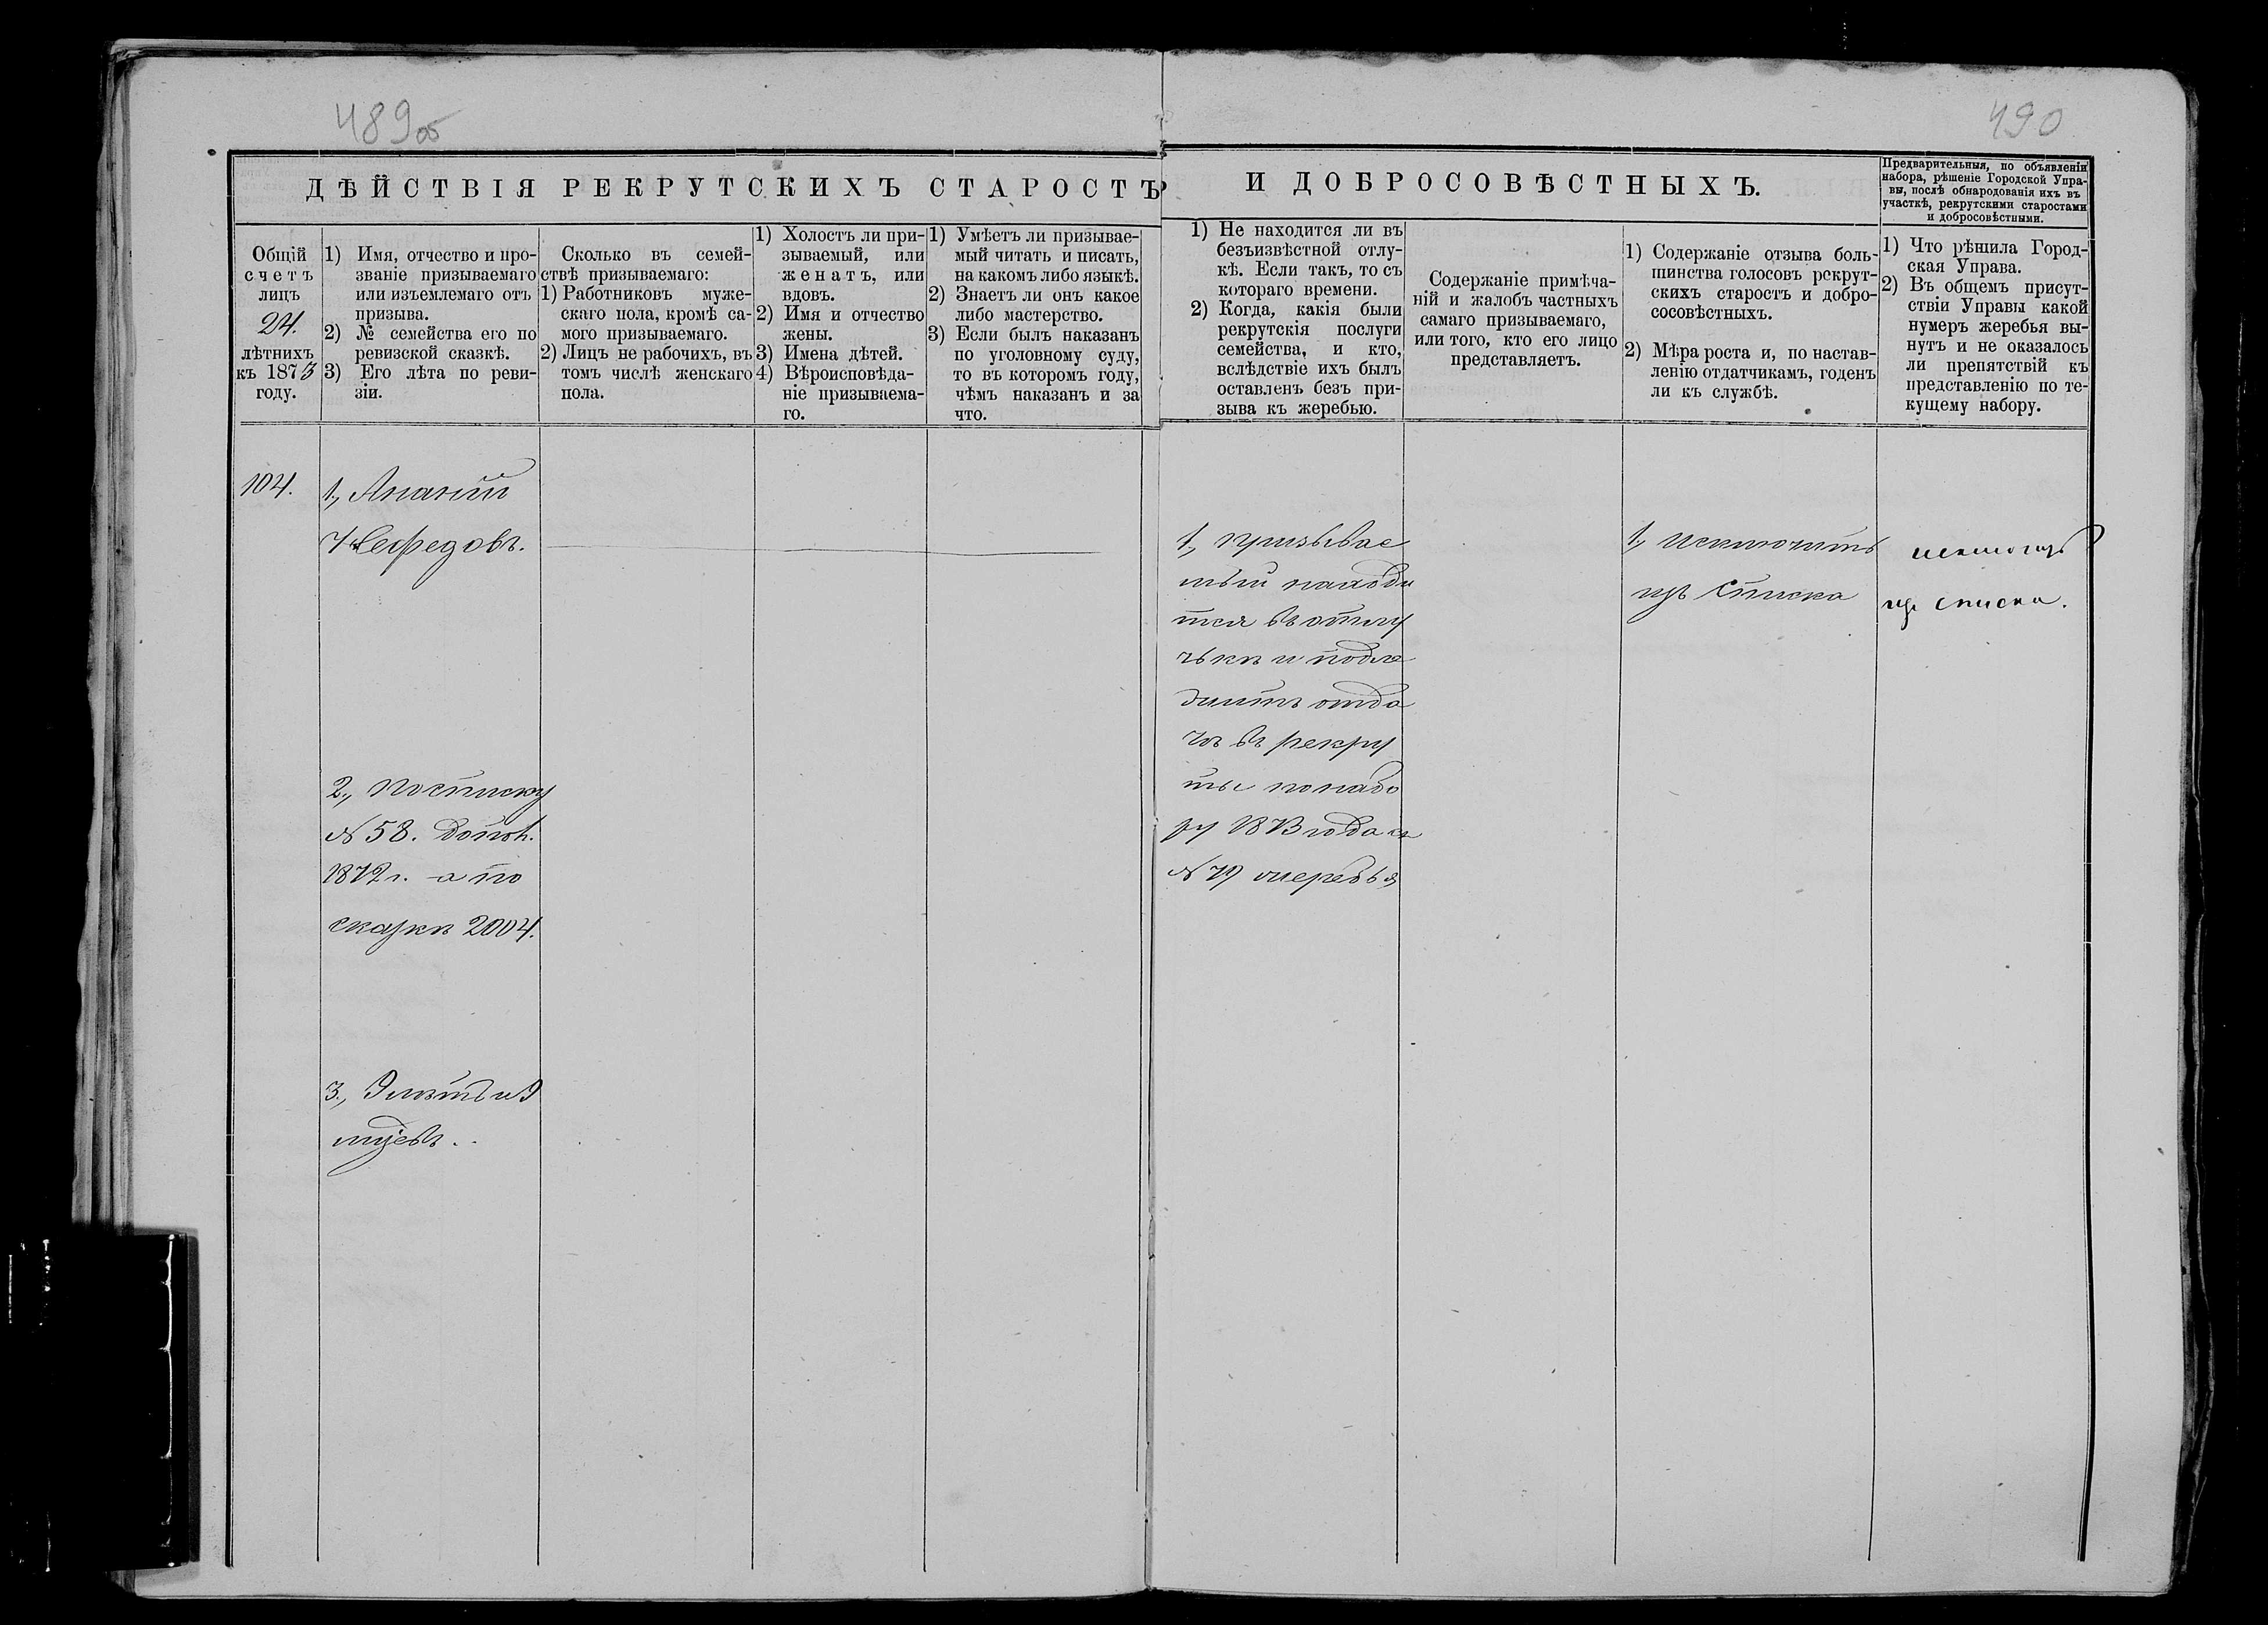 489об
490
ДѢЙСТВІЯ РЕКРУТСКИХЪ СТАРОСТЪ И ДОБРОСОВѢСТНЫХЪ.
Предварительныя, по объявленіи
набора, рѣшеніе Городской Упра-
вы, послѣ обнародованія ихъ въ
участкѣ, рекрутскими старостами
и добросовѣстными.
Общій
счетъ
лицъ
24.
лѣтнихъ
къ 1873
году.
1) Имя, отчество и про-
званіе призываемаго
или изъемлемаго отъ
призыва.
2) № семейства его по
ревизской сказкѣ.
3) Его лѣта по реви-
зіи.
Сколько въ семей-
ствѣ призываемаго:
1) Работниковъ муже-
скаго пола, кромѣ са-
мого призываемаго.
2) Лицъ не рабочихъ, въ
томъ числѣ женскаго
пола.
1) Холостъ ли при-
зываемый, или
женатъ, или
вдовъ.
2) Имя и отчество
жены.
3) Имена дѣтей.
4) Вѣроисповѣда-
ніе призываема-
го.
1) Умѣетъ ли призывае-
мый читать и писать,
на какомъ либо языкѣ.
2) Знаетъ ли онъ какое
либо мастерство.
3) Если былъ наказанъ
по уголовному суду,
то въ которомъ году,
чѣмъ наказанъ и за
что.
1) Не находится ли въ
безъизвѣстной отлу-
кѣ. Если такъ, то съ
котораго времени.
2) Когда, какія были
рекрутскія послуги
семейства, и кто,
вслѣдствіе ихъ былъ
оставленъ безъ при-
зыва къ жеребью.
Содержаніе примѣча-
ній и жалобъ частныхъ
самаго призываемаго,
или того, кто его лицо
представляетъ.
1) Содержаніе отзыва боль-
шинства голосовъ рекрут-
скихъ старостъ и добро-
сосовѣстныхъ.
2) Мѣра роста и, по настав-
ленію отдатчикамъ, годенъ
ли къ службѣ.
1) Что рѣшила Город-
ская Управа.
2) Въ общемъ присут-
ствіи Управы какой
нумеръ жеребья вы-
нутъ и не оказалось
ли препятствій къ
представленію по те-
кущему набору.
104.
1, Ананий
Нефедовъ.
2, По списку
№ 58. допол.
1872 г. а по
сказкѣ 2004.
3, 9 лѣтъ и 9
1, призывае
мый находи
тся въ отлу
чькѣ и подле
житъ отда
чѣ въ рекру
ты по набо
ру 1873 года
№ 79
1, Исключить
изъ Списка
изъ списка.